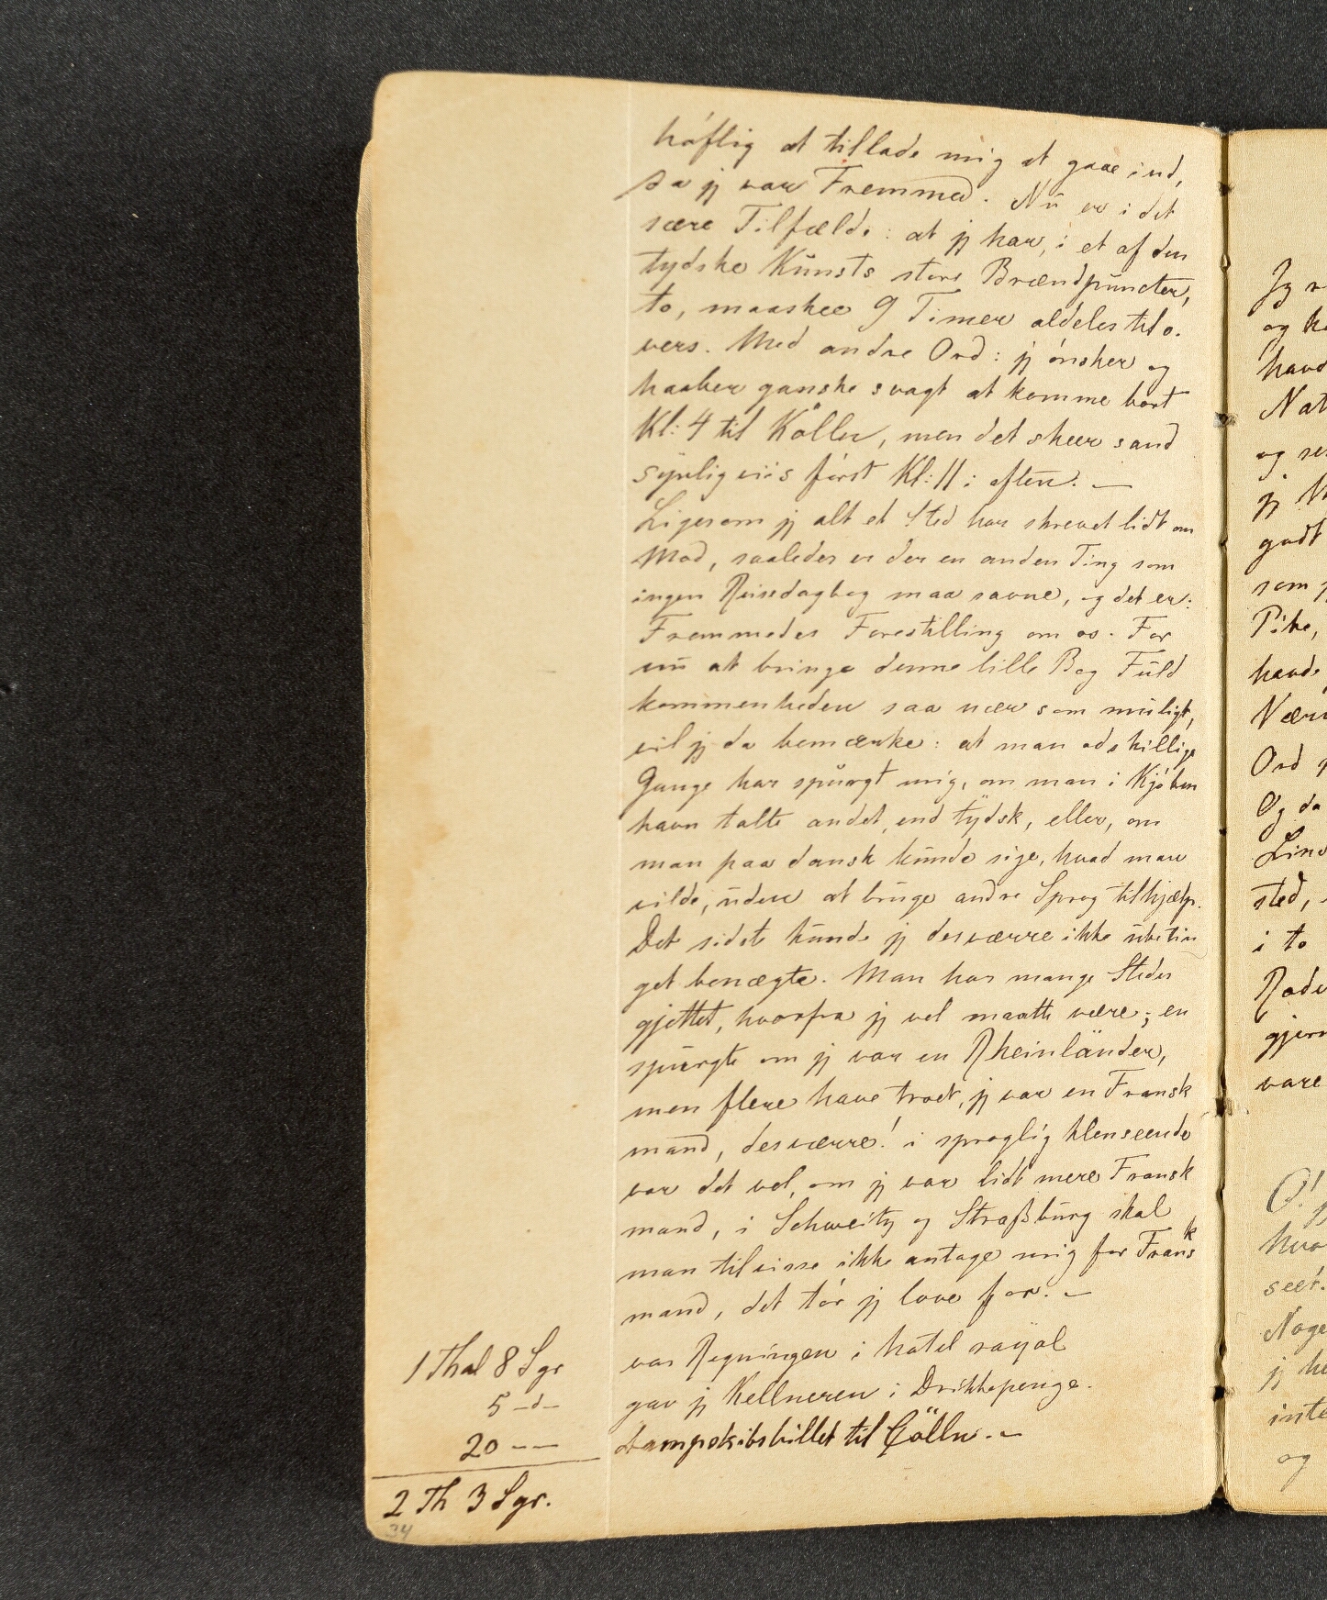 höflig at tillade mig at gaae ind,
da jg var Fremmed. Nu er i det
sære Tilfælde: at jg har, i et af den
tydske Kunsts store Brændpuncter,
to, maaskee 9 Timer aldeles tilo-
vers. Med andre Ord: jg önsker og
haaber ganske svagt at komme bort
Kl: 4 til Kölln, men det skeer sand
synlig viis först Kl: 11 i aften. —
Ligesom jg alt et Sted har skrevet lidt om
Mad, saaledes er der en anden Ting som
ingen Reisedagbog maa savne, og det er:
Fremmedes Forestilling om os. For
nu at bringe denne lille Bog Fuld
kommenheden saa nær som muligt,
vil jg da bemærke: at man adskillige
Gange har spurgt mig, om man i Kjöben
havn talte andet, end tydsk, eller, om
man paa dansk kunde sige, hvad man
vilde, uden at bruge andre Sprog til hjælp.
Det sidste kunde jg desværre ikke ubetin
get benægte. Man har mange Steder
gjettet, hvorfra jg vel maatte være; en
spurgte om jg var en Rheinländer,
men flere have troet, jg var en Fransk
mand, desværre! i sproglig Henseende
var det vel, om jg var lidt mere Fransk
mand, i Schweitz og Straßburg skal
man tilvisse ikke antage mig for Fransk
mand, det tör jg love for. —
1 Thal 8 Sgr var Regningen i hotel royal
5 —d— gav jg Kellneren i Drikkepenge.
20 —— Dampskibsbillet til Cölln. —
2 Th 3 Sgr.
34
Jg
og
havd
Nat
og
jg
godt
som
Pike,
havde
Nær
Ord
Og da
sted,
i to
gjer
vare
O!
hvo
seer.
Noge
jg
inte
og